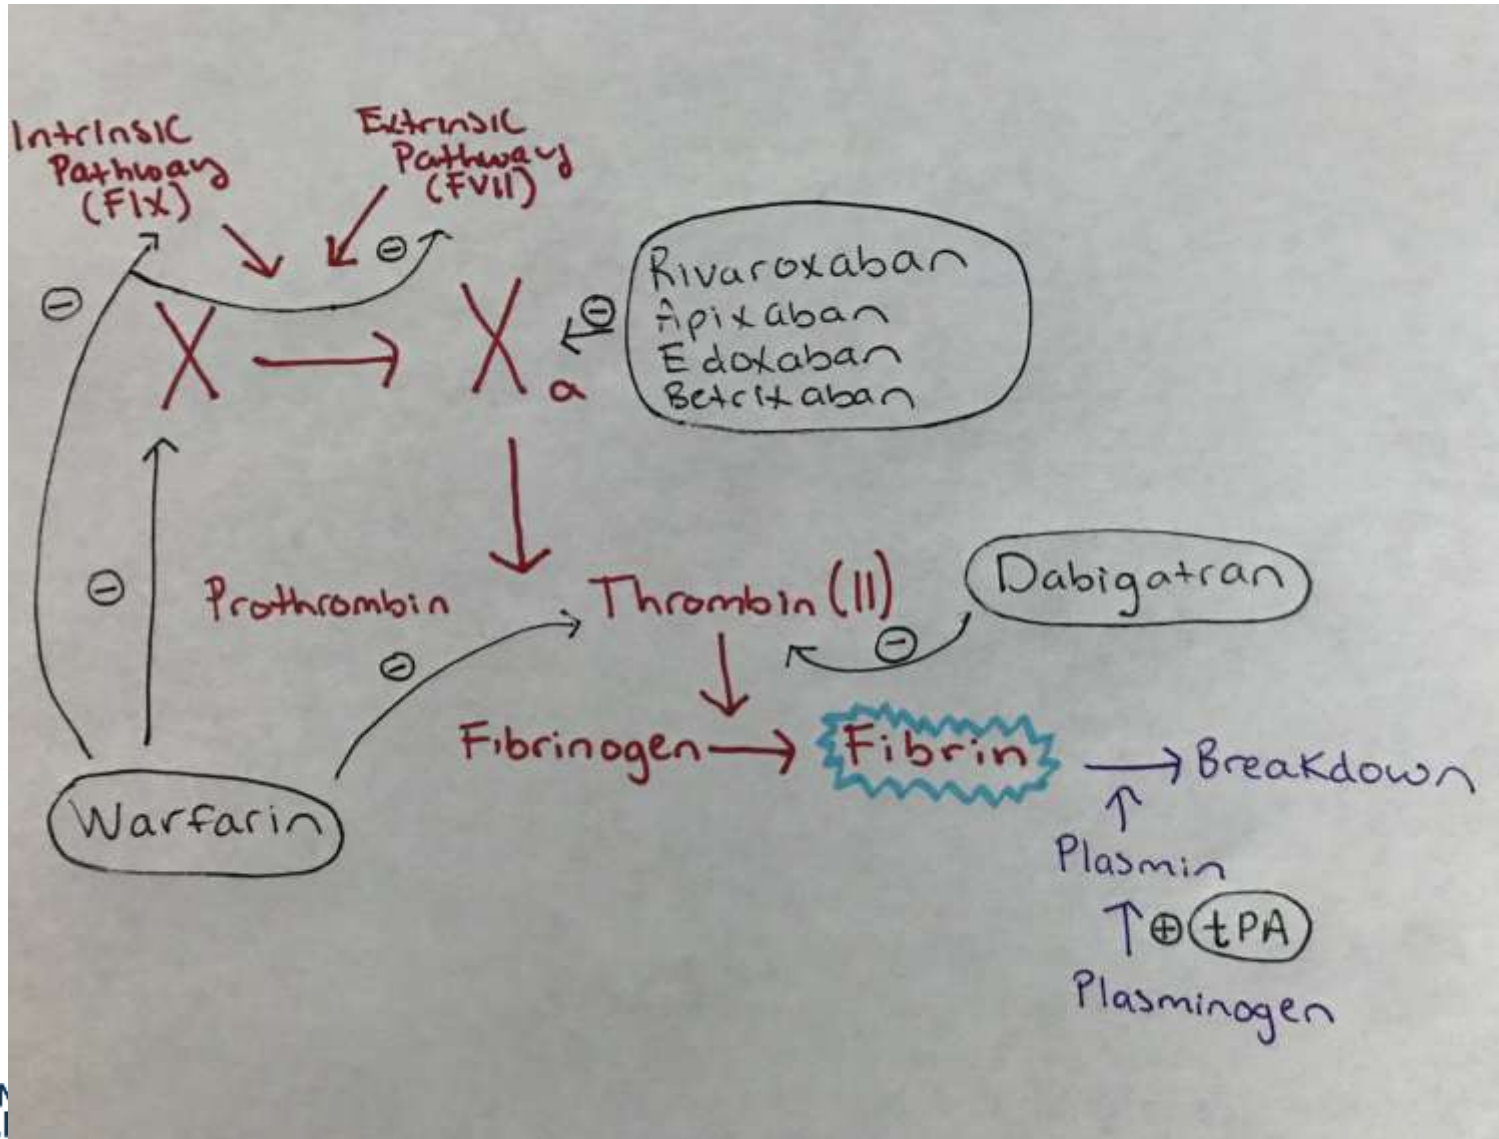 Intrinsic
Pathway
(FIX)
Extrinsic
Pathway
(FVII)
⊖
⊖
X
X
a
⊖
Rivaroxaban
Apixaban
Edoxaban
Betrixaban
⊖
Prothrombin
Thrombin (II)
Dabigatran
⊖
⊖
Fibrinogen
Fibrin
Breakdown
Warfarin
Plasmin
⊕ tPA
Plasminogen